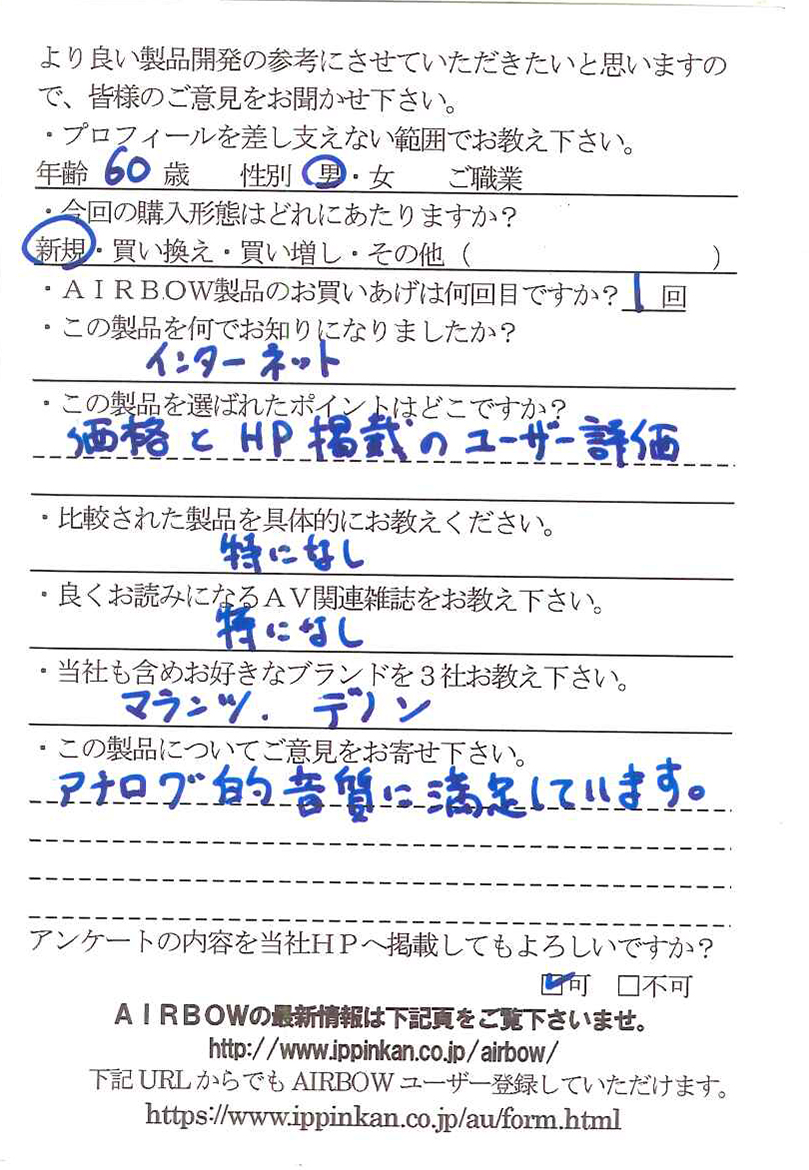 より良い製品開発の参考にさせていただきたいと思いますの
で、皆様のご意見をお聞かせ下さい。
・プロフィールを差し支えない範囲でお教え下さい。
年齢 60 歳 性別 男・女 ご職業
・今回の購入形態はどれにあたりますか？
新規・買い換え・買い増し・その他（ ）
・ＡＩＲＢＯＷ製品のお買いあげは何回目ですか？ 1 回
・この製品を何でお知りになりましたか？
インターネット
・この製品を選ばれたポイントはどこですか？
価格と HP 掲載のユーザー評価
・比較された製品を具体的にお教えください。
特になし
・良くお読みになるＡＶ関連雑誌をお教え下さい。
特になし
・当社も含めお好きなブランドを３社お教え下さい。
マランツ. デノン
・この製品についてご意見をお寄せ下さい。
アナログ的音質に満足しています。
アンケートの内容を当社ＨＰへ掲載してもよろしいですか？
☑可 □不可
ＡＩＲＢＯＷの最新情報は下記頁をご覧下さいませ。
http://www.ippinkan.co.jp/airbow/
下記 URL からでも AIRBOW ユーザー登録していただけます。
https://www.ippinkan.co.jp/au/form.html